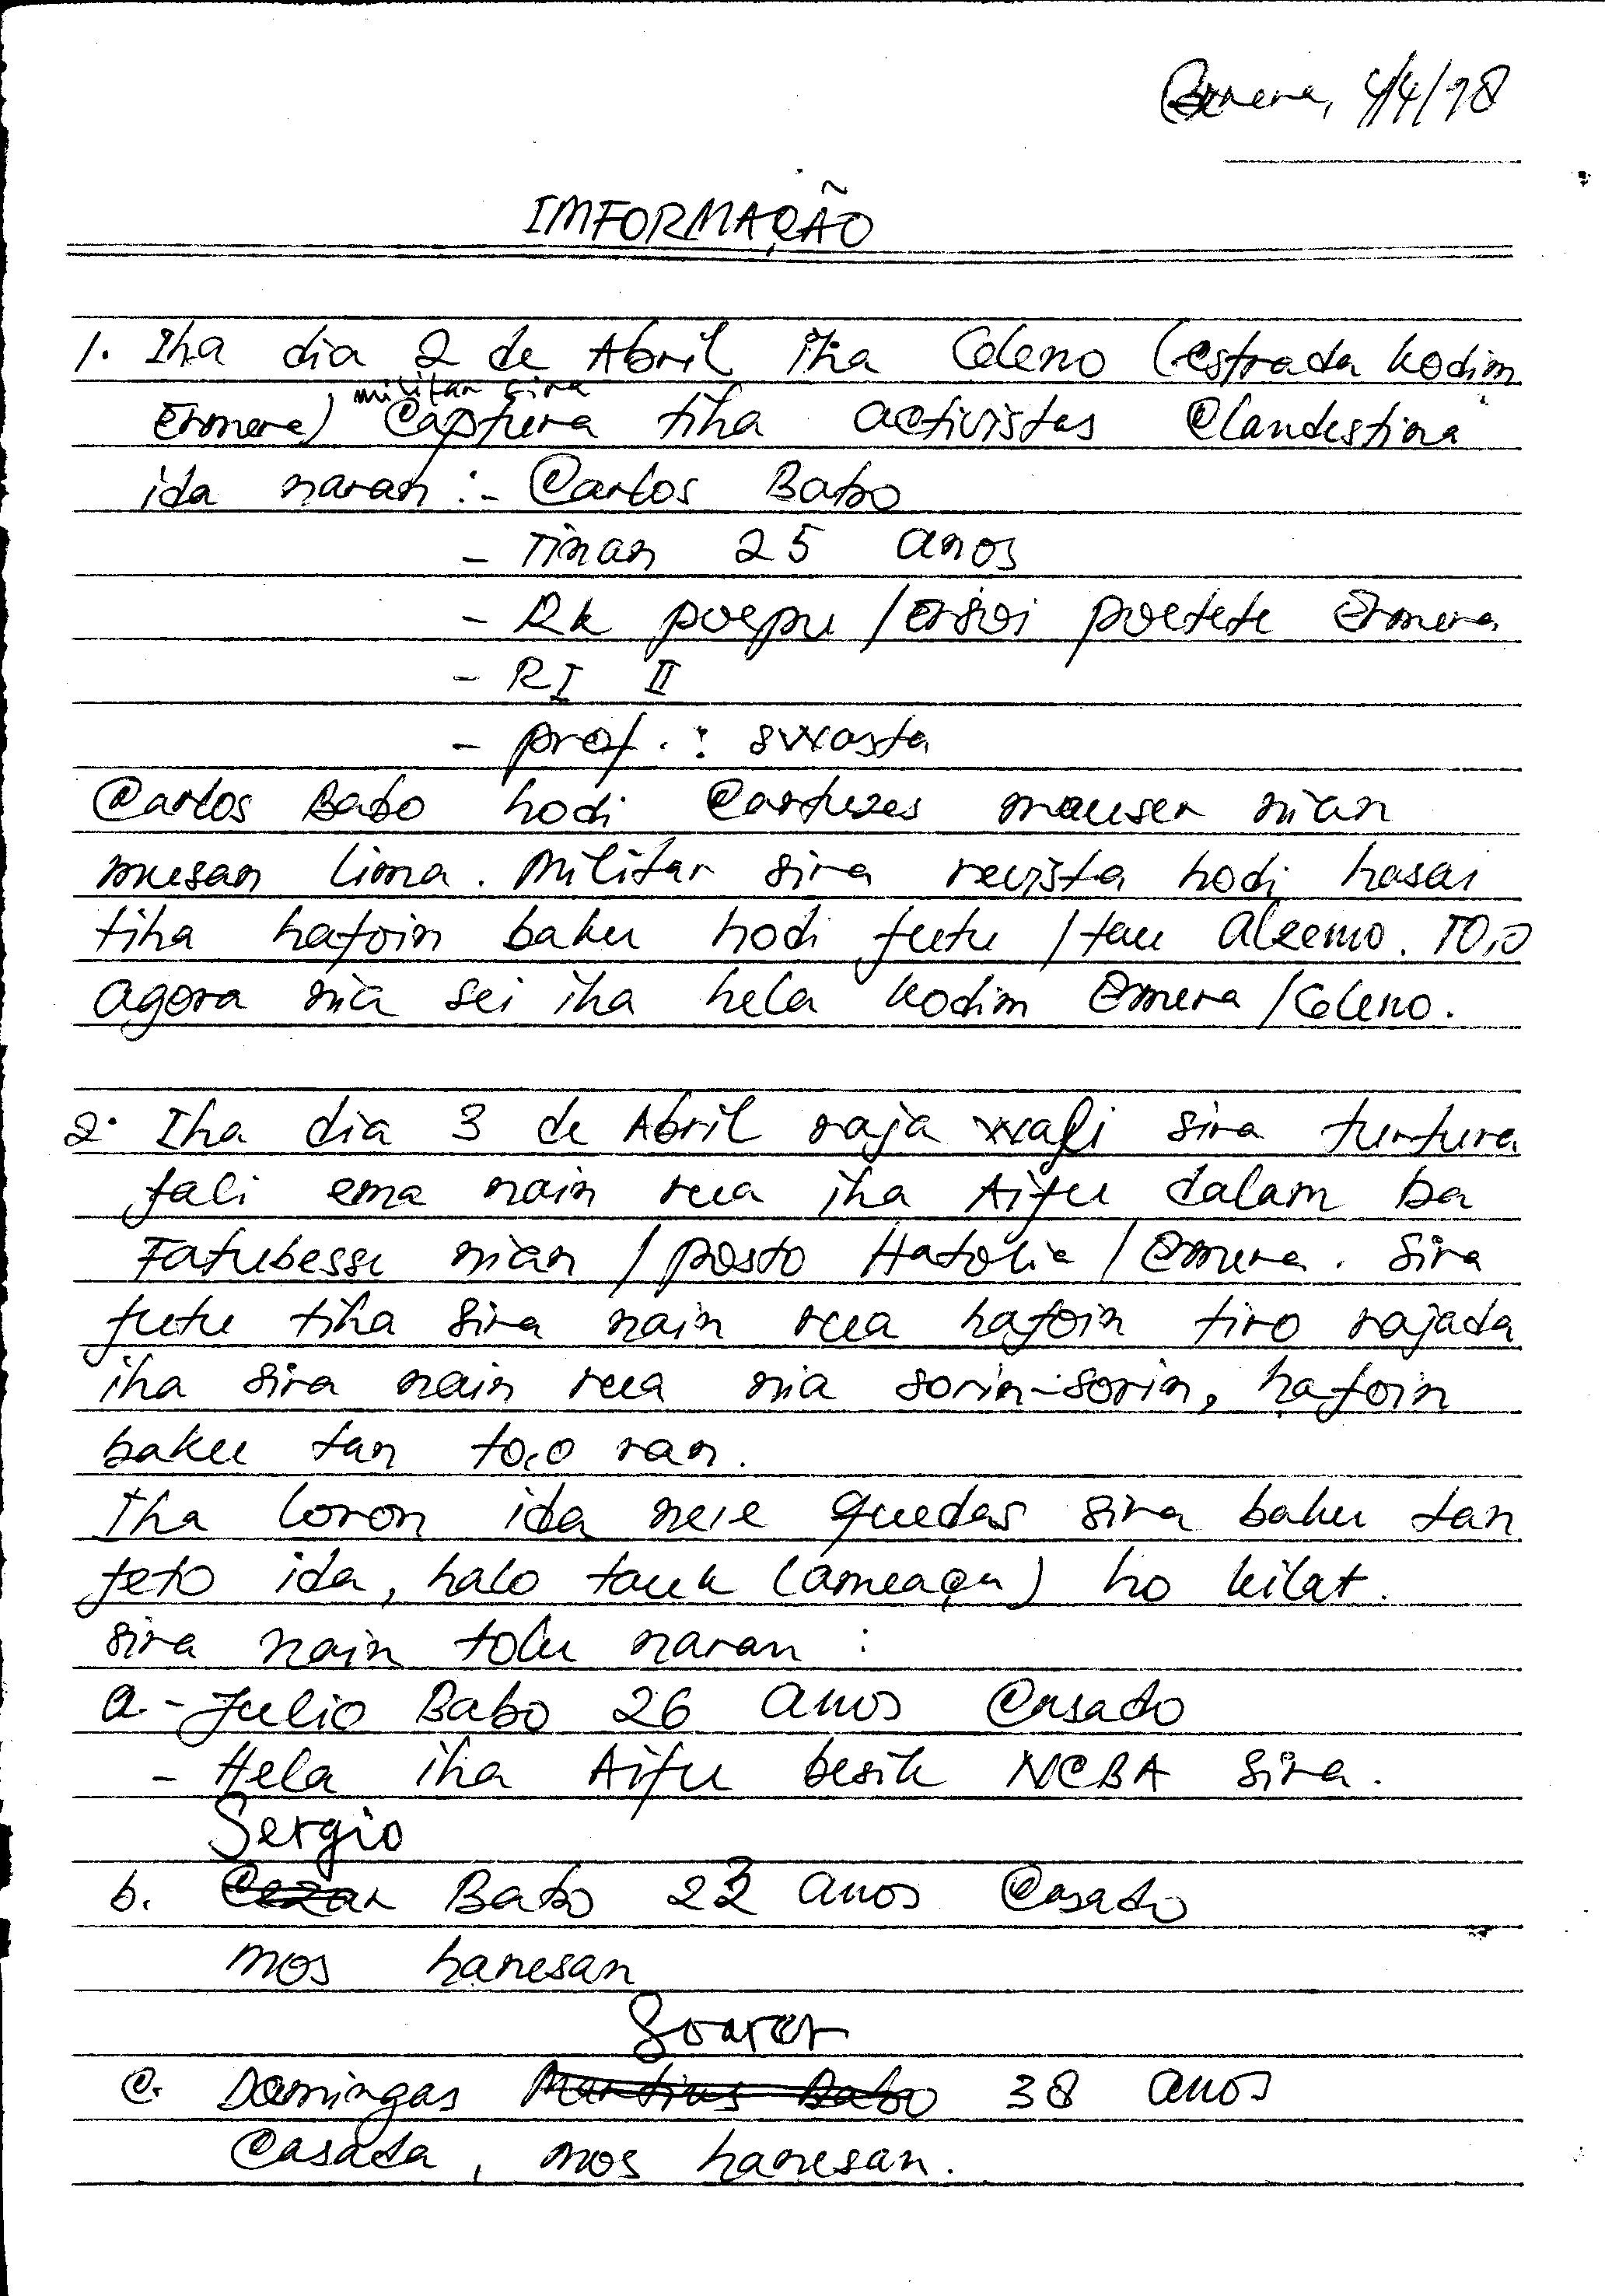 Ermera, 4/4/98
IMFORMAÇÃO
1. Iha dia 2 de Abril iha Gleno (estrada kodim
militar sira
Ermera) Captura tiha activistas Clandestina
ida naran :- Carlos Babo
- Tinan 25 anos
- RK poepu / ersoi poetete Ermera
- RI II
- prof. : swasta
Carlos Babo hodi Cartuxes mauser nian
musan lima. Militar sira revista hodi hasai
tiha hafoin baku hodi futu / tau algemo. To,o
agora nia sei iha hela kodim Ermera / Gleno.
2. Iha dia 3 de Abril raja wali sira turtura
fali ema nain rua iha Aifu dalam ba
Fatubesse nian / posto Hatolia / Ermera. Sira
futu tiha sira nain rua hafoin tiro rajada
iha sira nain rua nia sorin-sorin, hafoin
baku tan to,o ran.
Iha loron ida ne,e quedas sira baku tan
feto ida, halo tauk (ameaça) ho kilat.
sira nain tolu naran :
a.- Julio Babo 26 anos Casado
- Hela iha Aifu besik NCBA sira.
Sergio
b. Cezar Babo 23 anos Casado
mos hanesan
Soares
c. Domingas Martins Babo 38 anos
Casada, mos hanesan.